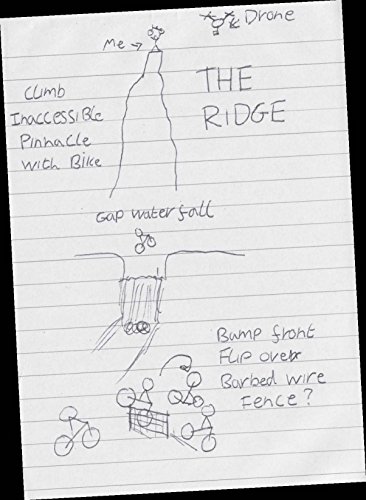 Drone
Me →
THE
RIDGE
Climb
Inaccessible
Pinnacle
with Bike
Gap waterfall
Bump front
Flip over
Barbed wire
Fence?